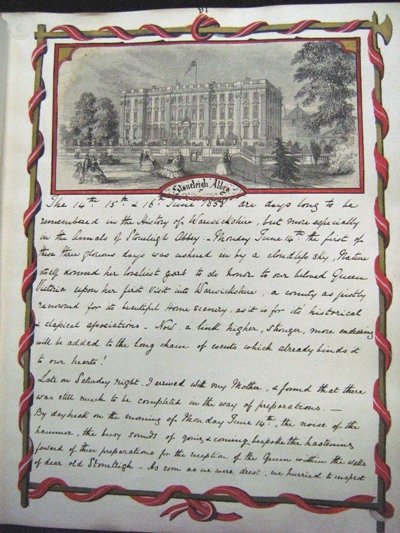 VI
Stoneleigh Abbey
The 14th 15th & 16th June 1858 are days long to be
remembered in the History of Warwickshire, but more especially
in the Annals of Stoneleigh Abbey – Monday June 14th the first of
these three glorious days was ushered in by a cloudless sky, Nature
itself donned her loveliest garb to do honor to our beloved Queen
Victoria upon her first visit into Warwickshire, a county as justly
renowned for its beautiful Home scenery, as it is for its historical
& classical associations – Now, a link higher, stronger, more endearing
will be added to the long chain of events which already binds it
to our hearts!
Late on Saturday night, I arrived with my Mother, & found that there
was still much to be completed in the way of preparations. –
By daybreak on the morning of Monday June 14th, the noise of the
hammer, the busy sounds of going & coming, bespoke the hastening
forward of these preparations for the reception of the Queen within the walls
of dear old Stoneleigh – As soon as we were drest, we hurried to inspect